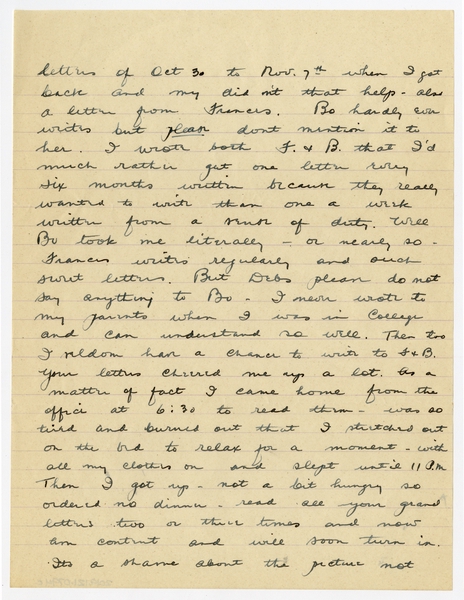 letters of Oct 30 to Nov. 7th when I got
back and my did n't that help - also
a letter from Frances. Bo hardly ever
writes but please dont mention it to
her. I wrote both F. & B. that I'd
much rather get one letter every
six months written because they really
wanted to write than one a week
written from a sense of duty. Well
Bo took me literally - or nearly so -
Frances writes regularly and such
sweet letters. But Debs please do not
say anything to Bo - I never wrote to
my parents when I was in College
and can understand so well. Then too
I seldom have a chance to write to F & B.
Your letters cheered me up a lot. As a
matter of fact I came home from the
office at 6:30 to read them - was so
tired and burned out that I stretched out
on the bed to relax for a moment - with
all my clothes on and slept until 11 P.M
Then I got up - not a bit hungry so
ordered no dinner - read all your grand
letters two or three times and now
am content and will soon turn in.
Its a shame about the picture not